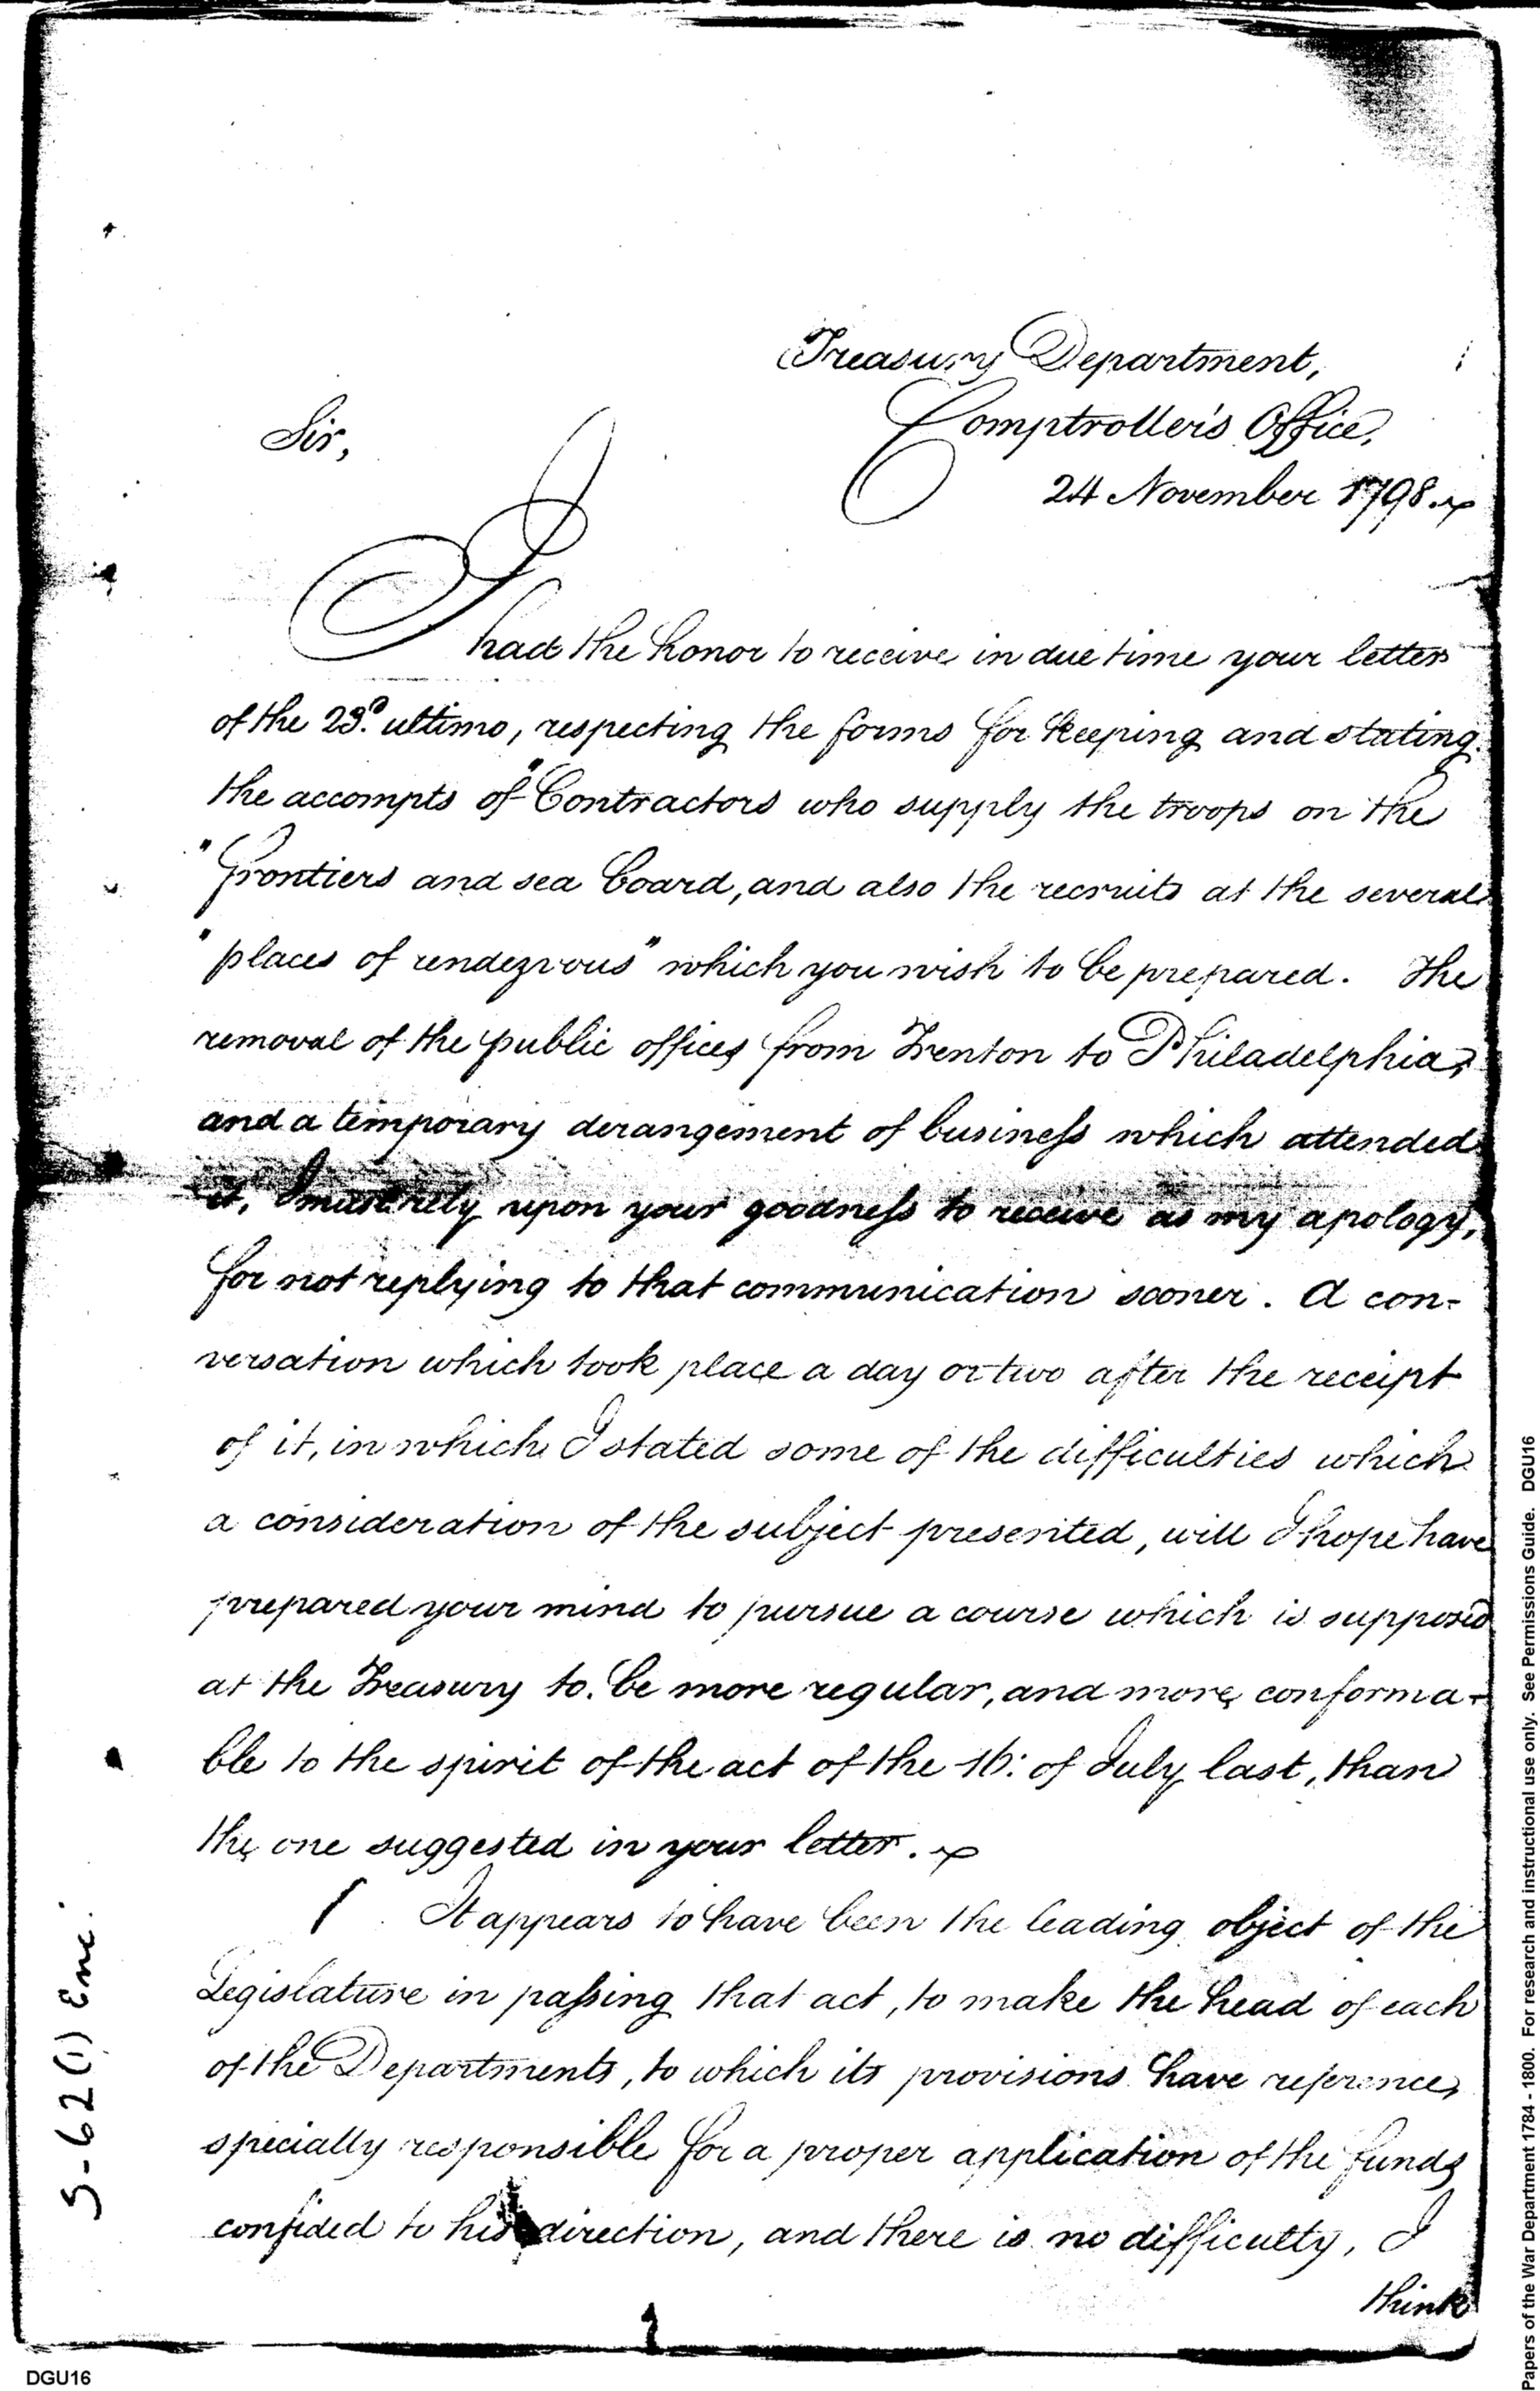 Treasury Department,
Comptroller's Office,
24 November 1798.
Sir,
I had the honor to receive in due time your letter
of the 23d. ultimo, respecting the forms for keeping and stating
the accompts of "Contractors who supply the troops on the
"frontiers and sea board, and also the recruits at the several
"places of rendezvous" which you wish to be prepared. The
removal of the public offices from Trenton to Philadelphia,
and a temporary derangement of business which attended
it, I must rely upon your goodness to receive as my apology,
for not replying to that communication sooner. A con-
versation which took place a day or two after the receipt
of it, in which I stated some of the difficulties which
a consideration of the subject presented, will I hope have
prepared your mind to pursue a course which is supposed
at the Treasury to be more regular, and more conforma-
ble to the spirit of the act of the 16: of July last, than
the one suggested in your letter.
It appears to have been the leading object of the
Legislature in passing that act, to make the head of each
of the Departments, to which its provisions have reference,
specially responsible for a proper application of the funds
confided to his direction, and there is no difficulty, I
think
S-62(1) Enc.
DGU16
Papers of the War Department 1784 - 1800. For research and instructional use only. See Permissions Guide. DGU16